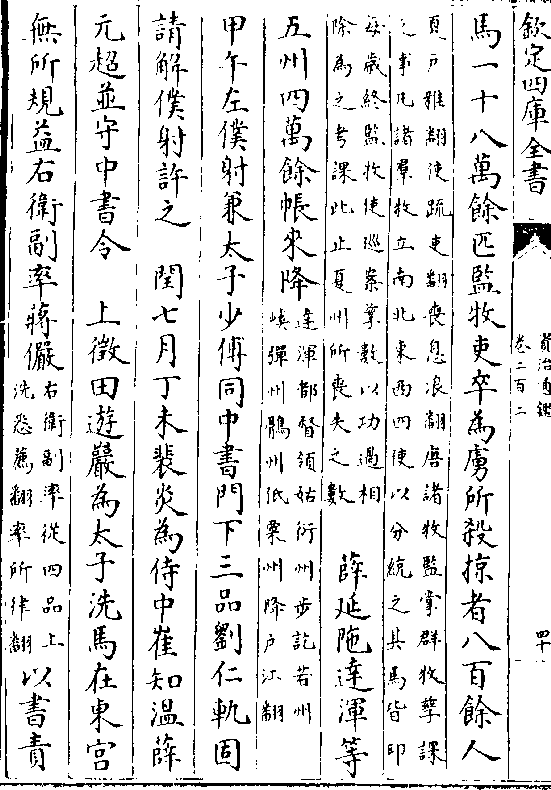 欽定四庫全書
資治通鑑
卷二百二
四十
馬一十八萬餘匹監牧吏卒為虜所殺掠者八百餘人
夏戸雅翻使疏吏翻喪息浪翻唐諸牧監掌群牧孳課
之事凡諸羣牧立南北東西四使以分統之其馬皆印
每歲終監牧使巡案孳數以功過相
除為之考課此止夏州所喪失之數
薛延陁達渾等
五州四萬餘帳來降
達渾都督領姑衍州步訖若州
嵠彈州鶻州低粟州降戸江翻
甲午左僕射兼太子少傅同中書門下三品劉仁軌固
請解僕射許之　閏七月丁未裴炎為侍中崔知温薛
元超並守中書令　上徵田遊巖為太子洗馬在東宮
無所規益右衛副率蔣儼
右衛副率從四品上
洗悉薦翻率所律翻
以書責